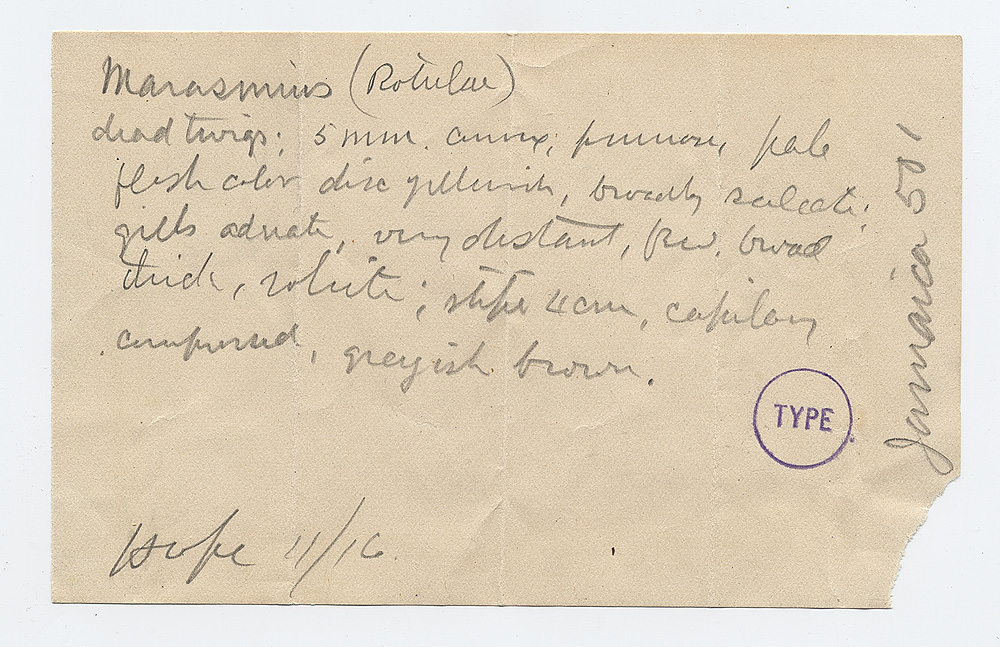 Marasmius (Rotulae)
dead twigs; 5 mm. convex, pruinose, pale
flesh color disc yellowish, broadly sulcate;
gills adnate, very distant, few, broad
thick, white; stipe 4 cm, capillary
compressed, greyish brown.
TYPE
Hope 11/16
Jamaica 501